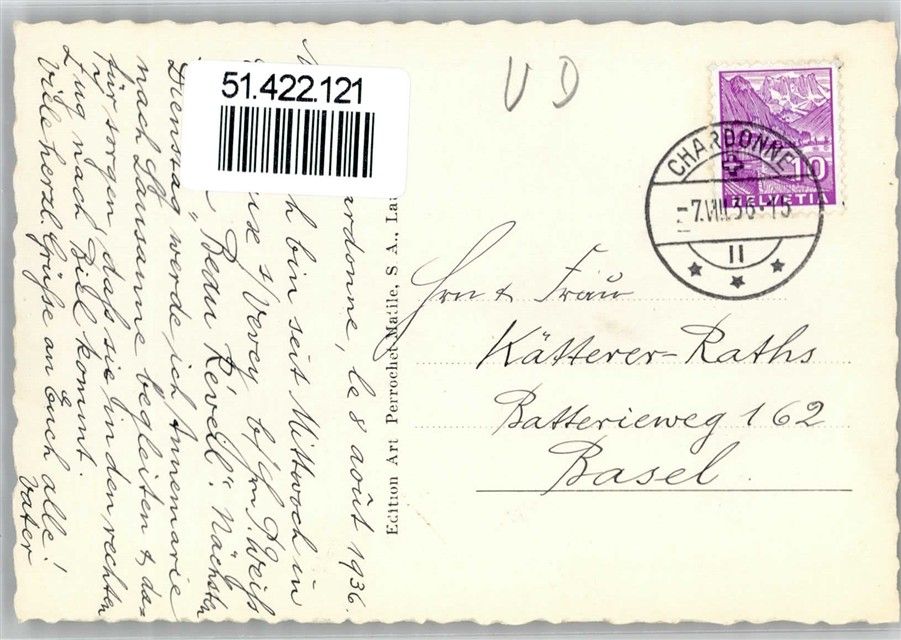 51.422.121
V D
CHARDONNE
-7.VIII.36-15
II
10
HELVETIA
Hrn & Frau
Kätterer-Raths
Batterieweg 162
Basel
Edition Art Perrochet-Matile, S. A., Lau
ardonne, le 8 août 1936.
h bin seit Mittwoch in
s/Vevey b/Frl. Weiß
„Beau Réveil". Nächsten
Dienstag werde ich Annemarie
nach Lausanne begleiten & da-
für sorgen, daß sie in den rechten
Zug nach Biel kommt.
Viele herzl. Grüße an Euch alle!
Vater